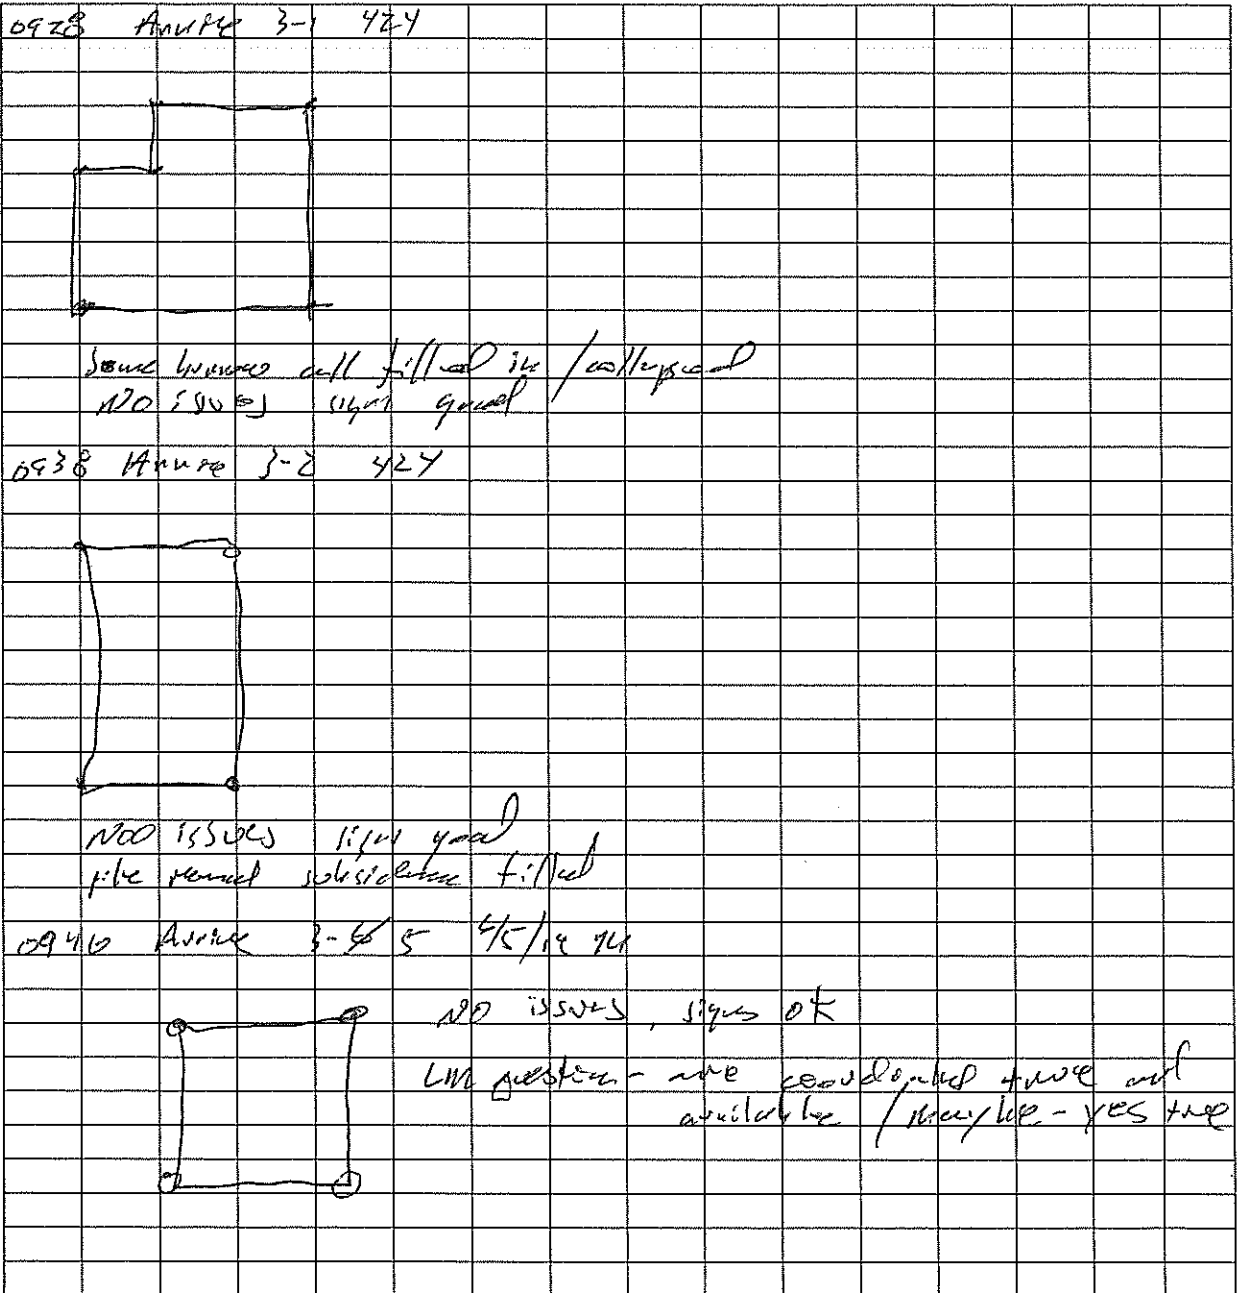 0928 Arrive 3-1 424
Some burrows all filled in / collapsed
NO issues signs good
0938 Arrive 3-2 424
NOO issues signs good
subsidence filled
0940 Arrive 3- 5
NO issues, signs ok
LM question - are coordinates true and
available / maybe - yes true